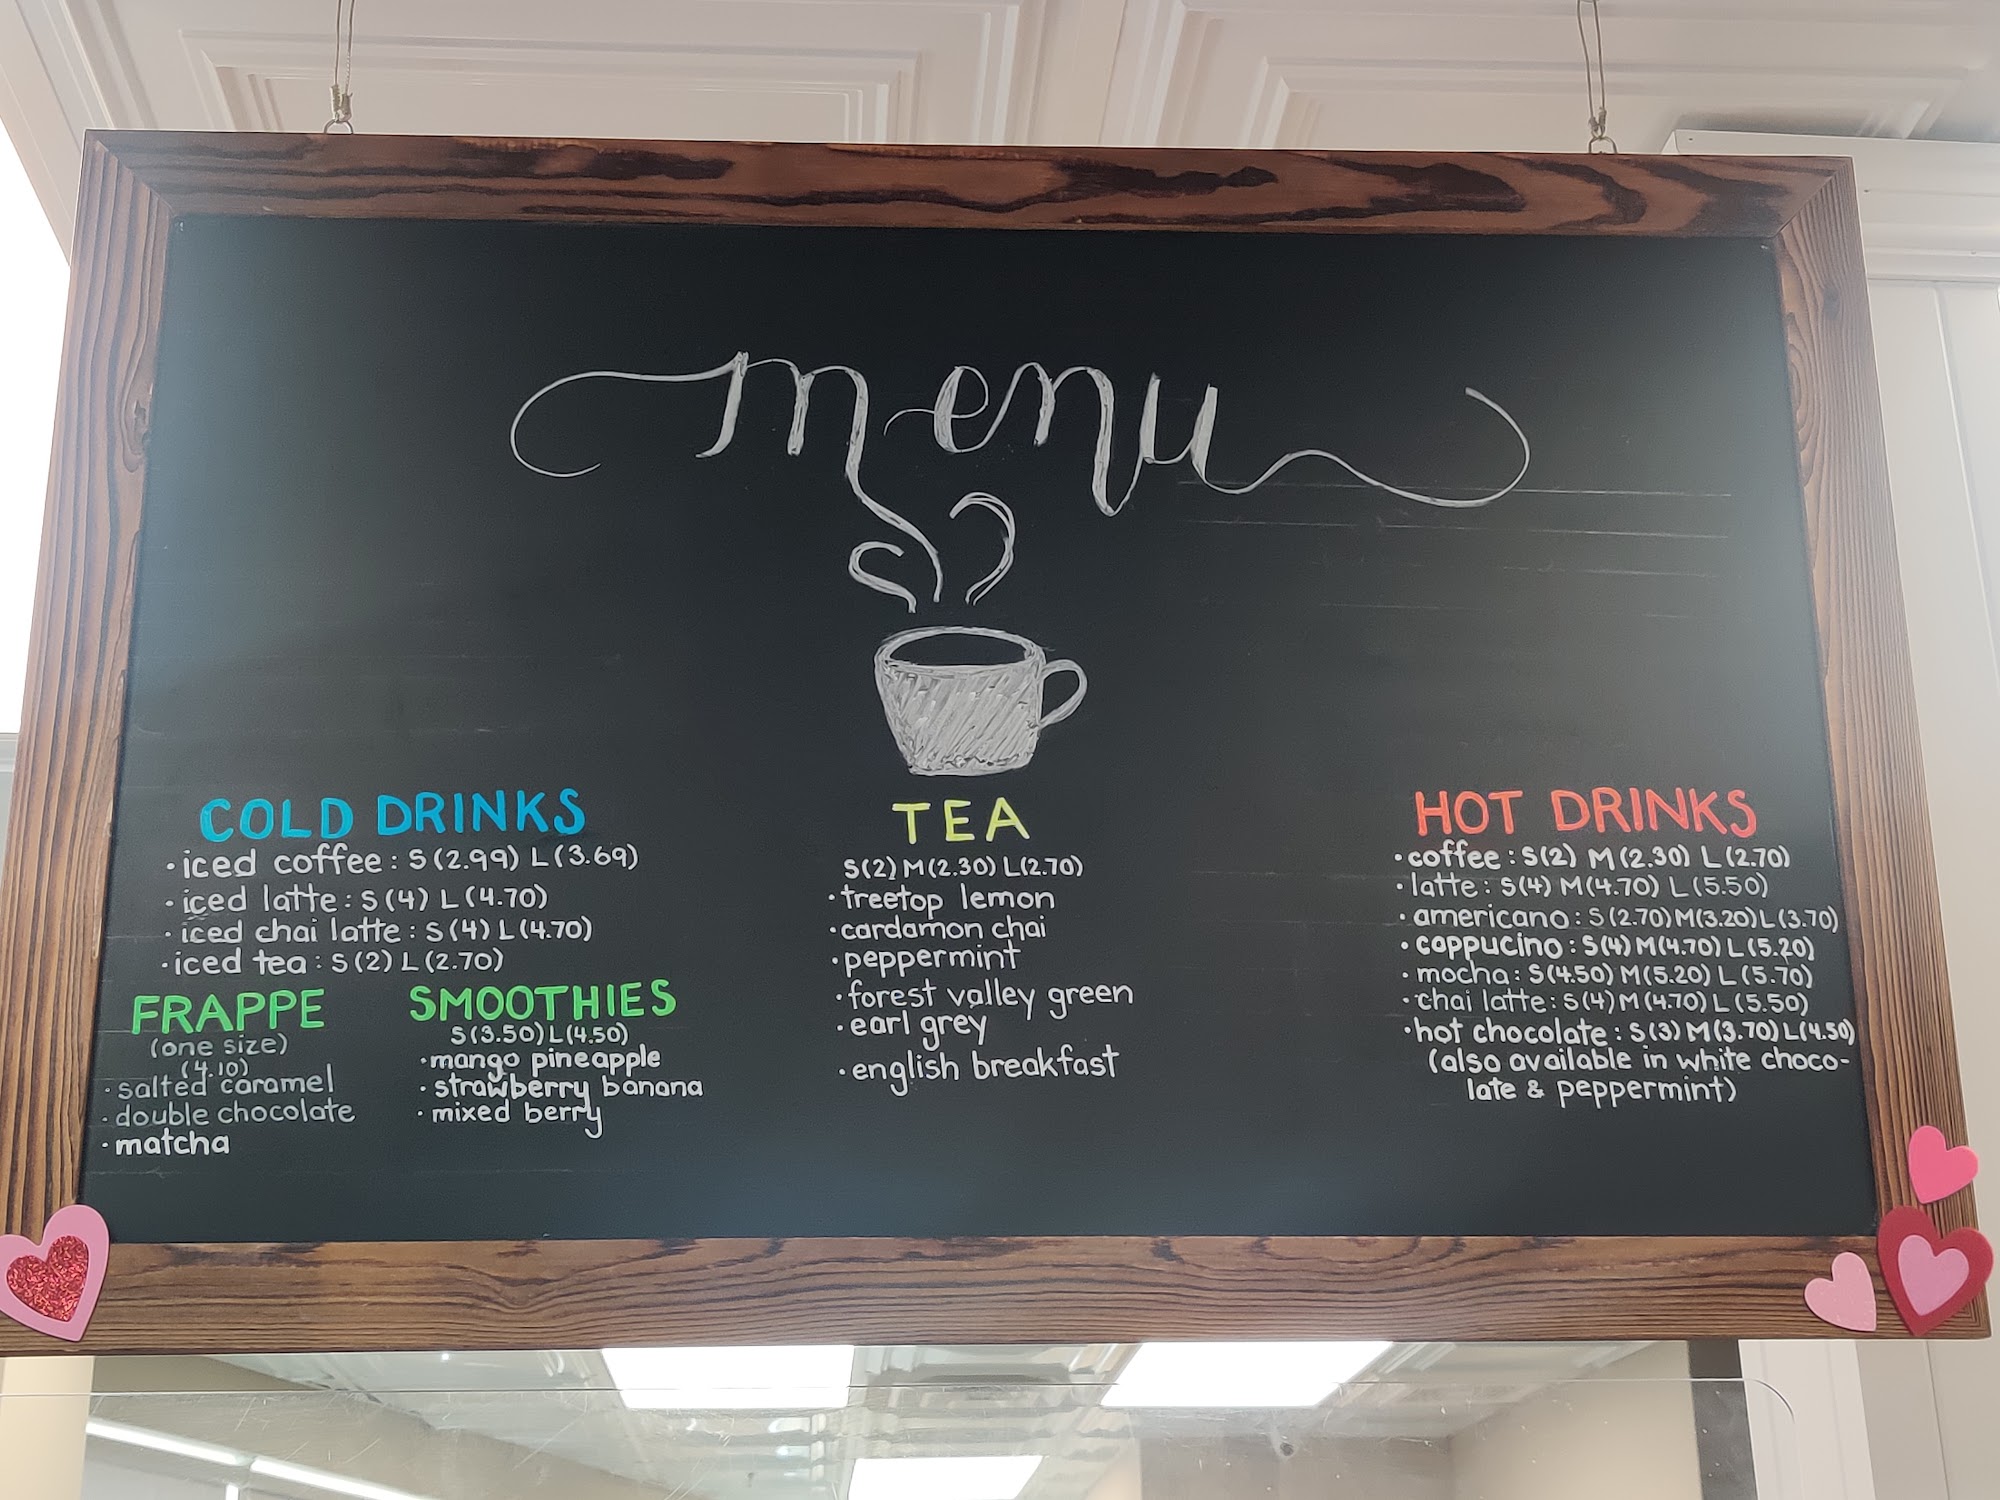 menu
COLD DRINKS
• iced coffee: S(2.99) L(3.69)
• iced latte: S(4) L(4.70)
• iced chai latte: S(4) L(4.70)
• iced tea: S(2) L(2.70)
FRAPPE
(one size)
(4.10)
• salted caramel
• double chocolate
• matcha
SMOOTHIES
S(3.50) L(4.50)
• mango pineapple
• strawberry banana
• mixed berry
TEA
S(2) M(2.30) L(2.70)
• treetop lemon
• cardamon chai
• peppermint
• forest valley green
• earl grey
• english breakfast
HOT DRINKS
• coffee: S(2) M(2.30) L(2.70)
• latte: S(4) M(4.70) L(5.50)
• americano: S(2.70) M(3.20) L(3.70)
• cappucino: S(4) M(4.70) L(5.20)
• mocha: S(4.50) M(5.20) L(5.70)
• chai latte: S(4) M(4.70) L(5.50)
• hot chocolate: S(3) M(3.70) L(4.50)
(also available in white choco-
late & peppermint)